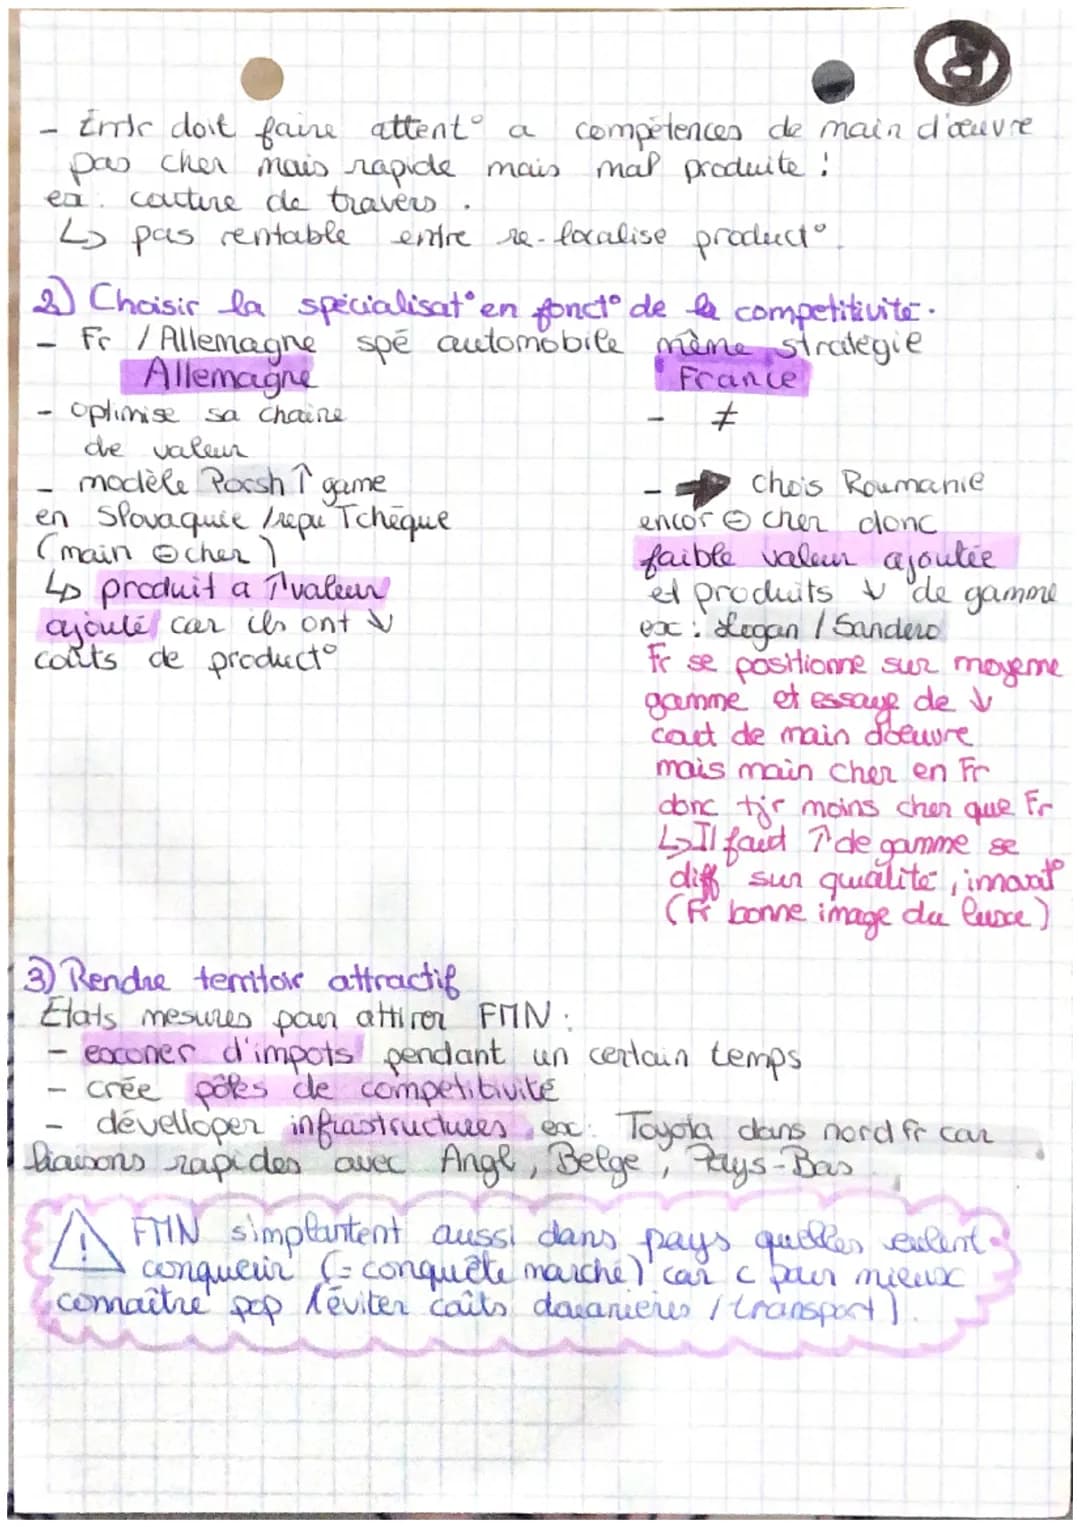 - Entr doit faire attent° a compétences de main d'œuvre
pas cher mais rapide mais mal produite !
ex : couture de travers .
↳ pas rentable entre re-localise product°.
2) Choisir la spécialisat° en fonct° de la competitivité.
- Fr / Allemagne spé automobile même strategie
Allemagne
- optimise sa chaine
de valeur
- modèle Porsh ↑ game
en Slovaquie / repu Tchèque
(main ⊖ cher)
↳ produit a ↑ valeur
ajouté car ils ont ↓
coûts de product°
France
- ≠
- → chois Roumanie
encor ⊖ cher donc
faible valeur ajoutée
et produits ↓ de gamme
ex : Logan / Sandero
Fr se positionne sur moyenne
gamme et essaye de ↓
cout de main d'oeuvre
mais main cher en Fr
donc tjr moins cher que Fr
↳ Il faud ↑ de gamme se
diff sur qualité, innovat°
(Fr bonne image du luxe)
3) Rendre territoir attractif
Etats mesures pour attirer FMN :
- exoner d'impots pendant un certain temps
- crée pôles de competitivité
- dévelloper infrastructures ex: Toyota dans nord fr car
liaisons rapides avec Angl, Belge, Pays-Bas
⚠ FMN s'implantent aussi dans pays qu'elles veulent
conquerir (= conquête marché) car c pour mieux
connaître pop / éviter coûts douanieres / transport).